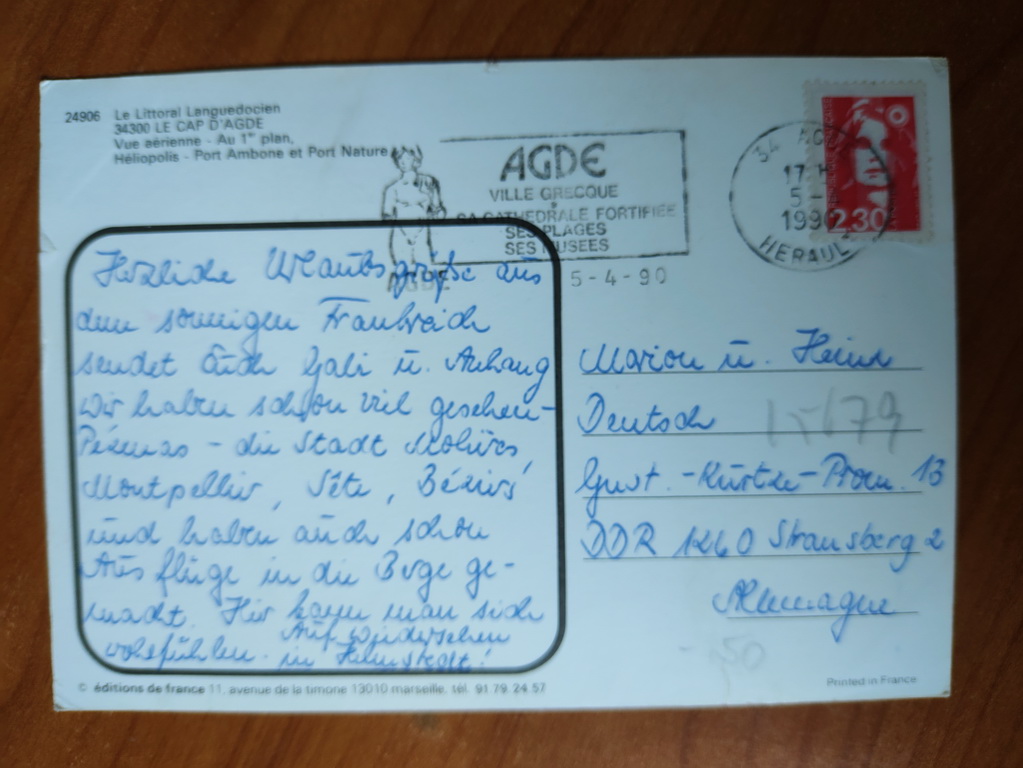 24906 Le Littoral Languedocien
34300 LE CAP D'AGDE
Vue aérienne - Au 1er plan,
Héliopolis - Port Ambone et Port Nature
AGDE
VILLE GRECQUE
SA CATHEDRALE FORTIFIEE
SES PLAGES
SES MUSEES
AGDE
5-4-90
34 AGDE
17 H
5 -
1990
HERAULT
2,30
Herzliche Urlaubsgrüße aus
dem sonnigen Frankreich
sendet Euch Gabi u. Anhang
Wir haben schon viel gesehen -
Pézenas - die Stadt Molières,
Montpellier, Sête, Béziers
und haben auch schon
Ausflüge in die Berge ge-
macht. Hier kann man sich
wohlfühlen. Auf Wiedersehen
in Helmstedt!
Marion u. Heinz
Deutsch
15679
Gust.-Kurtze-Prom. 13
DDR 1260 Strausberg 2
Allemagne
-50
© éditions de france 11, avenue de la timone 13010 marseille. tél. 91 79 24 57
Printed in France